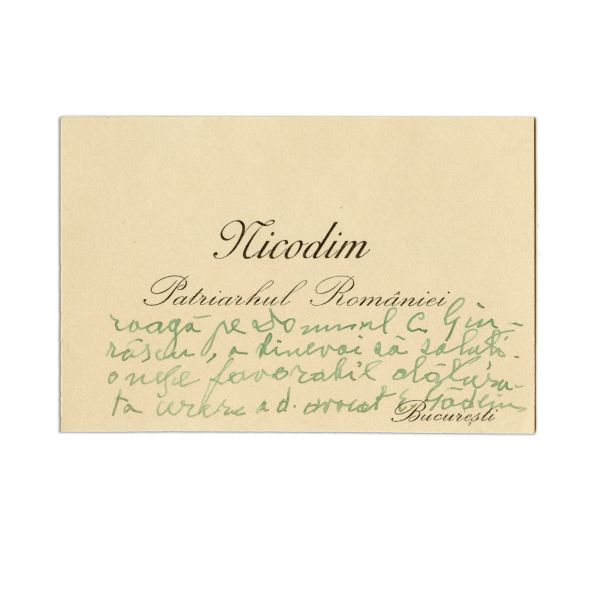 Nicodim
Patriarhul României
roagă pe Domnul C. Giu-
răscu, a binevoi să soluți-
oneze favorabil alătura-
ta cerere a d. avocat
București